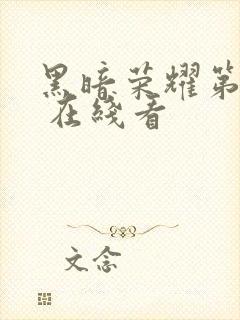 黑暗荣耀第
在线看
文念